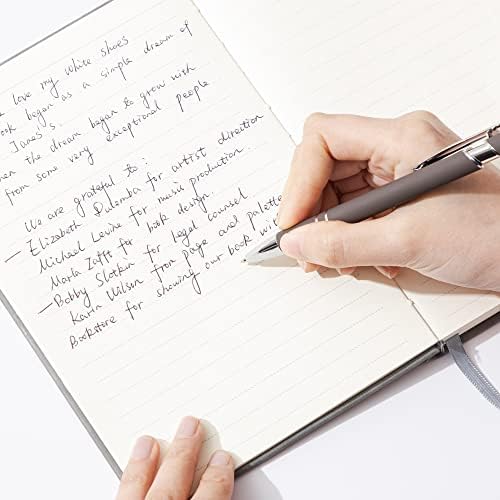 love my white shoes
book began as a simple dream of
James's.
when the dream began to grow with
from some very exceptional people
We are grateful to:
— Elizabeth Dulemba for artist direction
Michael Levine for music production.
Marla Zafft for book design.
— Bobby Slotkin for legal counsel
Karin Wilson from page and palette
Bookstore for showing our book wi